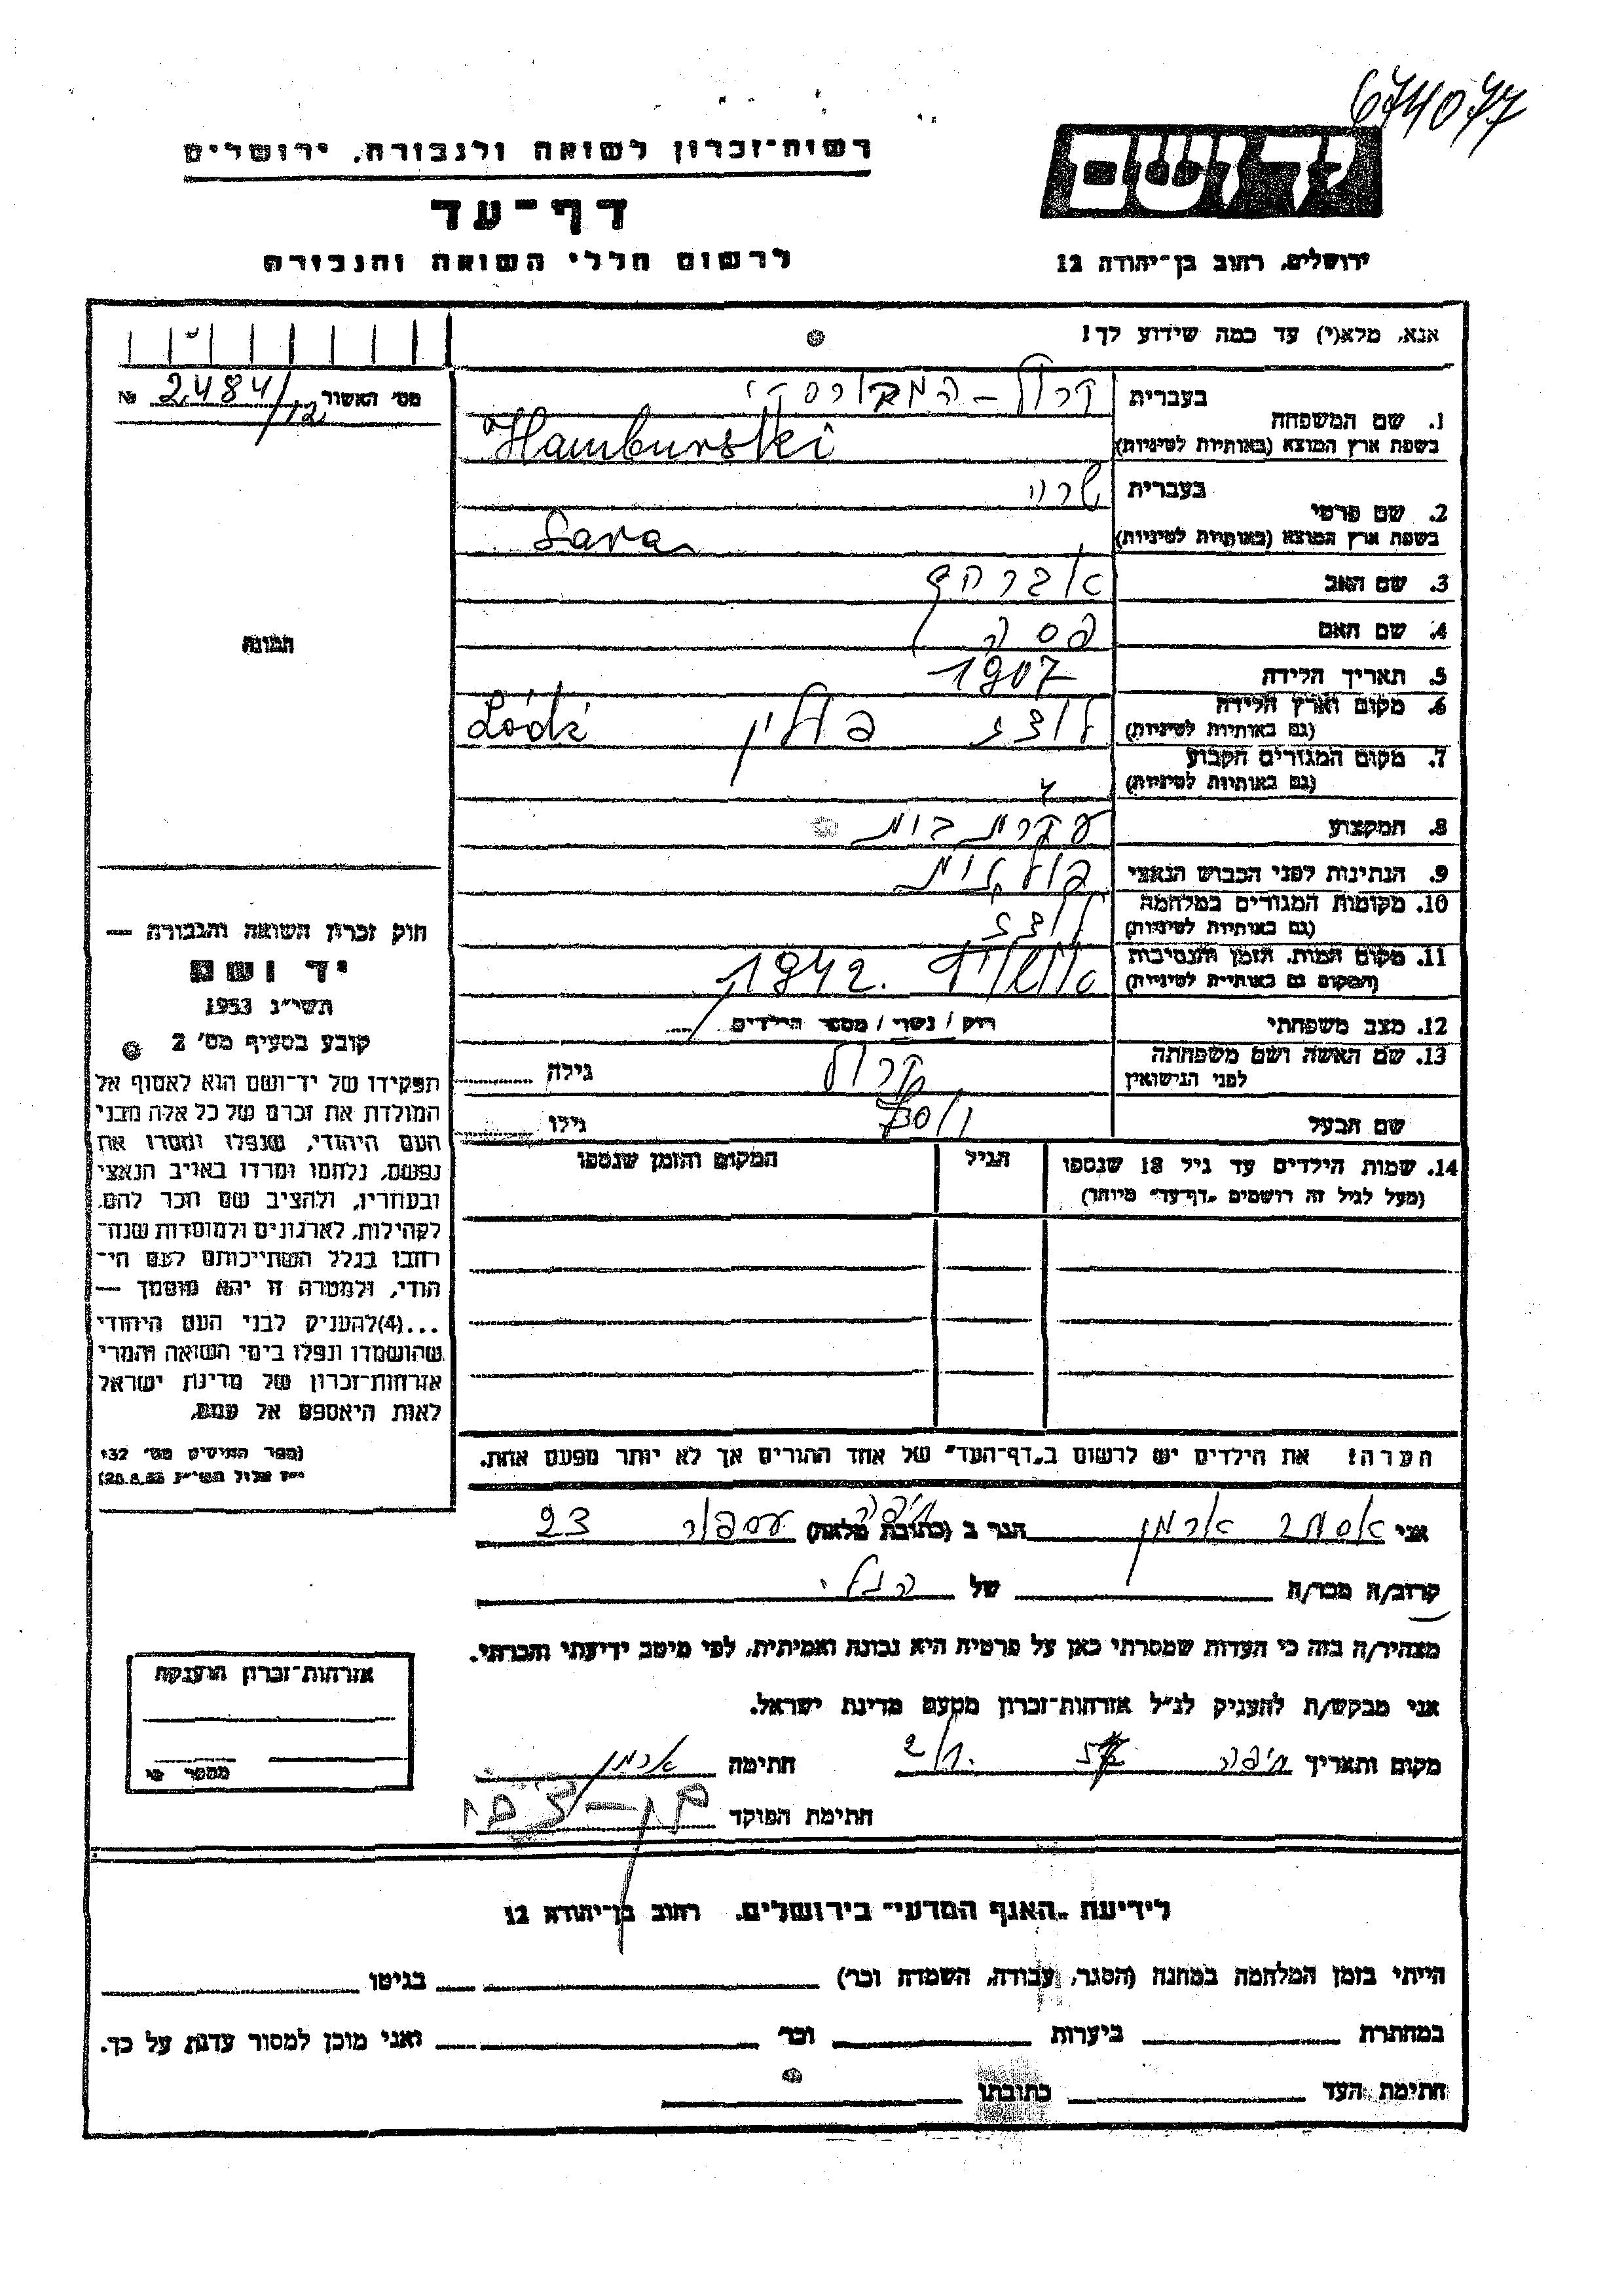 674077
רשות-זכרון לשואה ולגבורה, ירושלים
יד ושם
דף-עד
לרשום חללי השואה והגבורה
ירושלים, רחוב בן-יהודה 12
אנא, מלא(י) עד כמה שידוע לך!
מס' האשור 2484/12 №
1. שם המשפחה
בעברית קרול - המבורסקי
בשפת ארץ המוצא (באותיות לטיניות) Hamburski
2. שם פרטי
בעברית שרה
בשפת ארץ המוצא (באותיות לטיניות) Sara
3. שם האב אברהם
4. שם האם פסה
5. תאריך הלידה 1907
6. מקום וארץ הלידה לודג פולין Łódź
(גם באותיות לטיניות)
7. מקום המגורים הקבוע
(גם באותיות לטיניות)
8. המקצוע עקרת בית
9. הנתינות לפני הכבוש הנאצי פולנית
10. מקומות המגורים במלחמה לודג
(גם באותיות לטיניות)
11. מקום המות, הזמן והנסיבות אושויץ 1942.
(המקום גם באותיות לטיניות)
12. מצב משפחתי רוק / נשוי / מספר הילדים
13. שם האשה ושם משפחתה קרול גילה
לפני הנישואין
שם הבעל גילו
14. שמות הילדים עד גיל 18 שנספו הגיל המקום והזמן שנספו
(מעל לגיל זה רושמים "דף-עד" מיוחד)
תמונה
חוק זכרון השואה והגבורה —
יד ושם
תשי"ג 1953
קובע בסעיף מס' 2
תפקידו של יד-ושם הוא לאסוף אל
המולדת את זכרם של כל אלה מבני
העם היהודי, שנפלו ומסרו את
נפשם, נלחמו ומרדו באויב הנאצי
ובעוזריו, ולהציב שם וזכר להם,
לקהילות, לארגונים ולמוסדות שנח-
רבו בגלל השתייכותם לעם הי-
הודי, ולמטרה זו יהא מוסמך —
...(4)להעניק לבני העם היהודי
שהושמדו ונפלו בימי השואה והמרי
אזרחות-זכרון של מדינת ישראל
לאות היאספם אל עמם.
(ספר החוקים מס' 132
י"ז אלול תשי"ג 28.8.53)
הערה! את הילדים יש לרשום ב"דף-העד" של אחד ההורים אך לא יותר מפעם אחת.
אני אסתר ארמן הגר ב (כתובת מלאה) חיפה 23
קרוב/ה מכר/ה של הנ"ל
מצהיר/ה בזה כי העדות שמסרתי כאן על פרטיה היא נכונה ואמיתית, לפי מיטב ידיעתי והכרתי.
אני מבקש/ת להעניק לנ"ל אזרחות-זכרון מטעם מדינת ישראל.
מקום ותאריך חיפה חתימה ארמן
חתימת הפוקד בן-צבי
אזרחות-זכרון הוענקה
מספר
לידיעת "האגף המדעי" בירושלים, רחוב בן-יהודה 12
הייתי בזמן המלחמה במחנה (הסגר, עבודה, השמדה וכו') בגיטו
במחתרת ביערות וכו' ואני מוכן למסור עדות על כך.
חתימת העד כתובתו